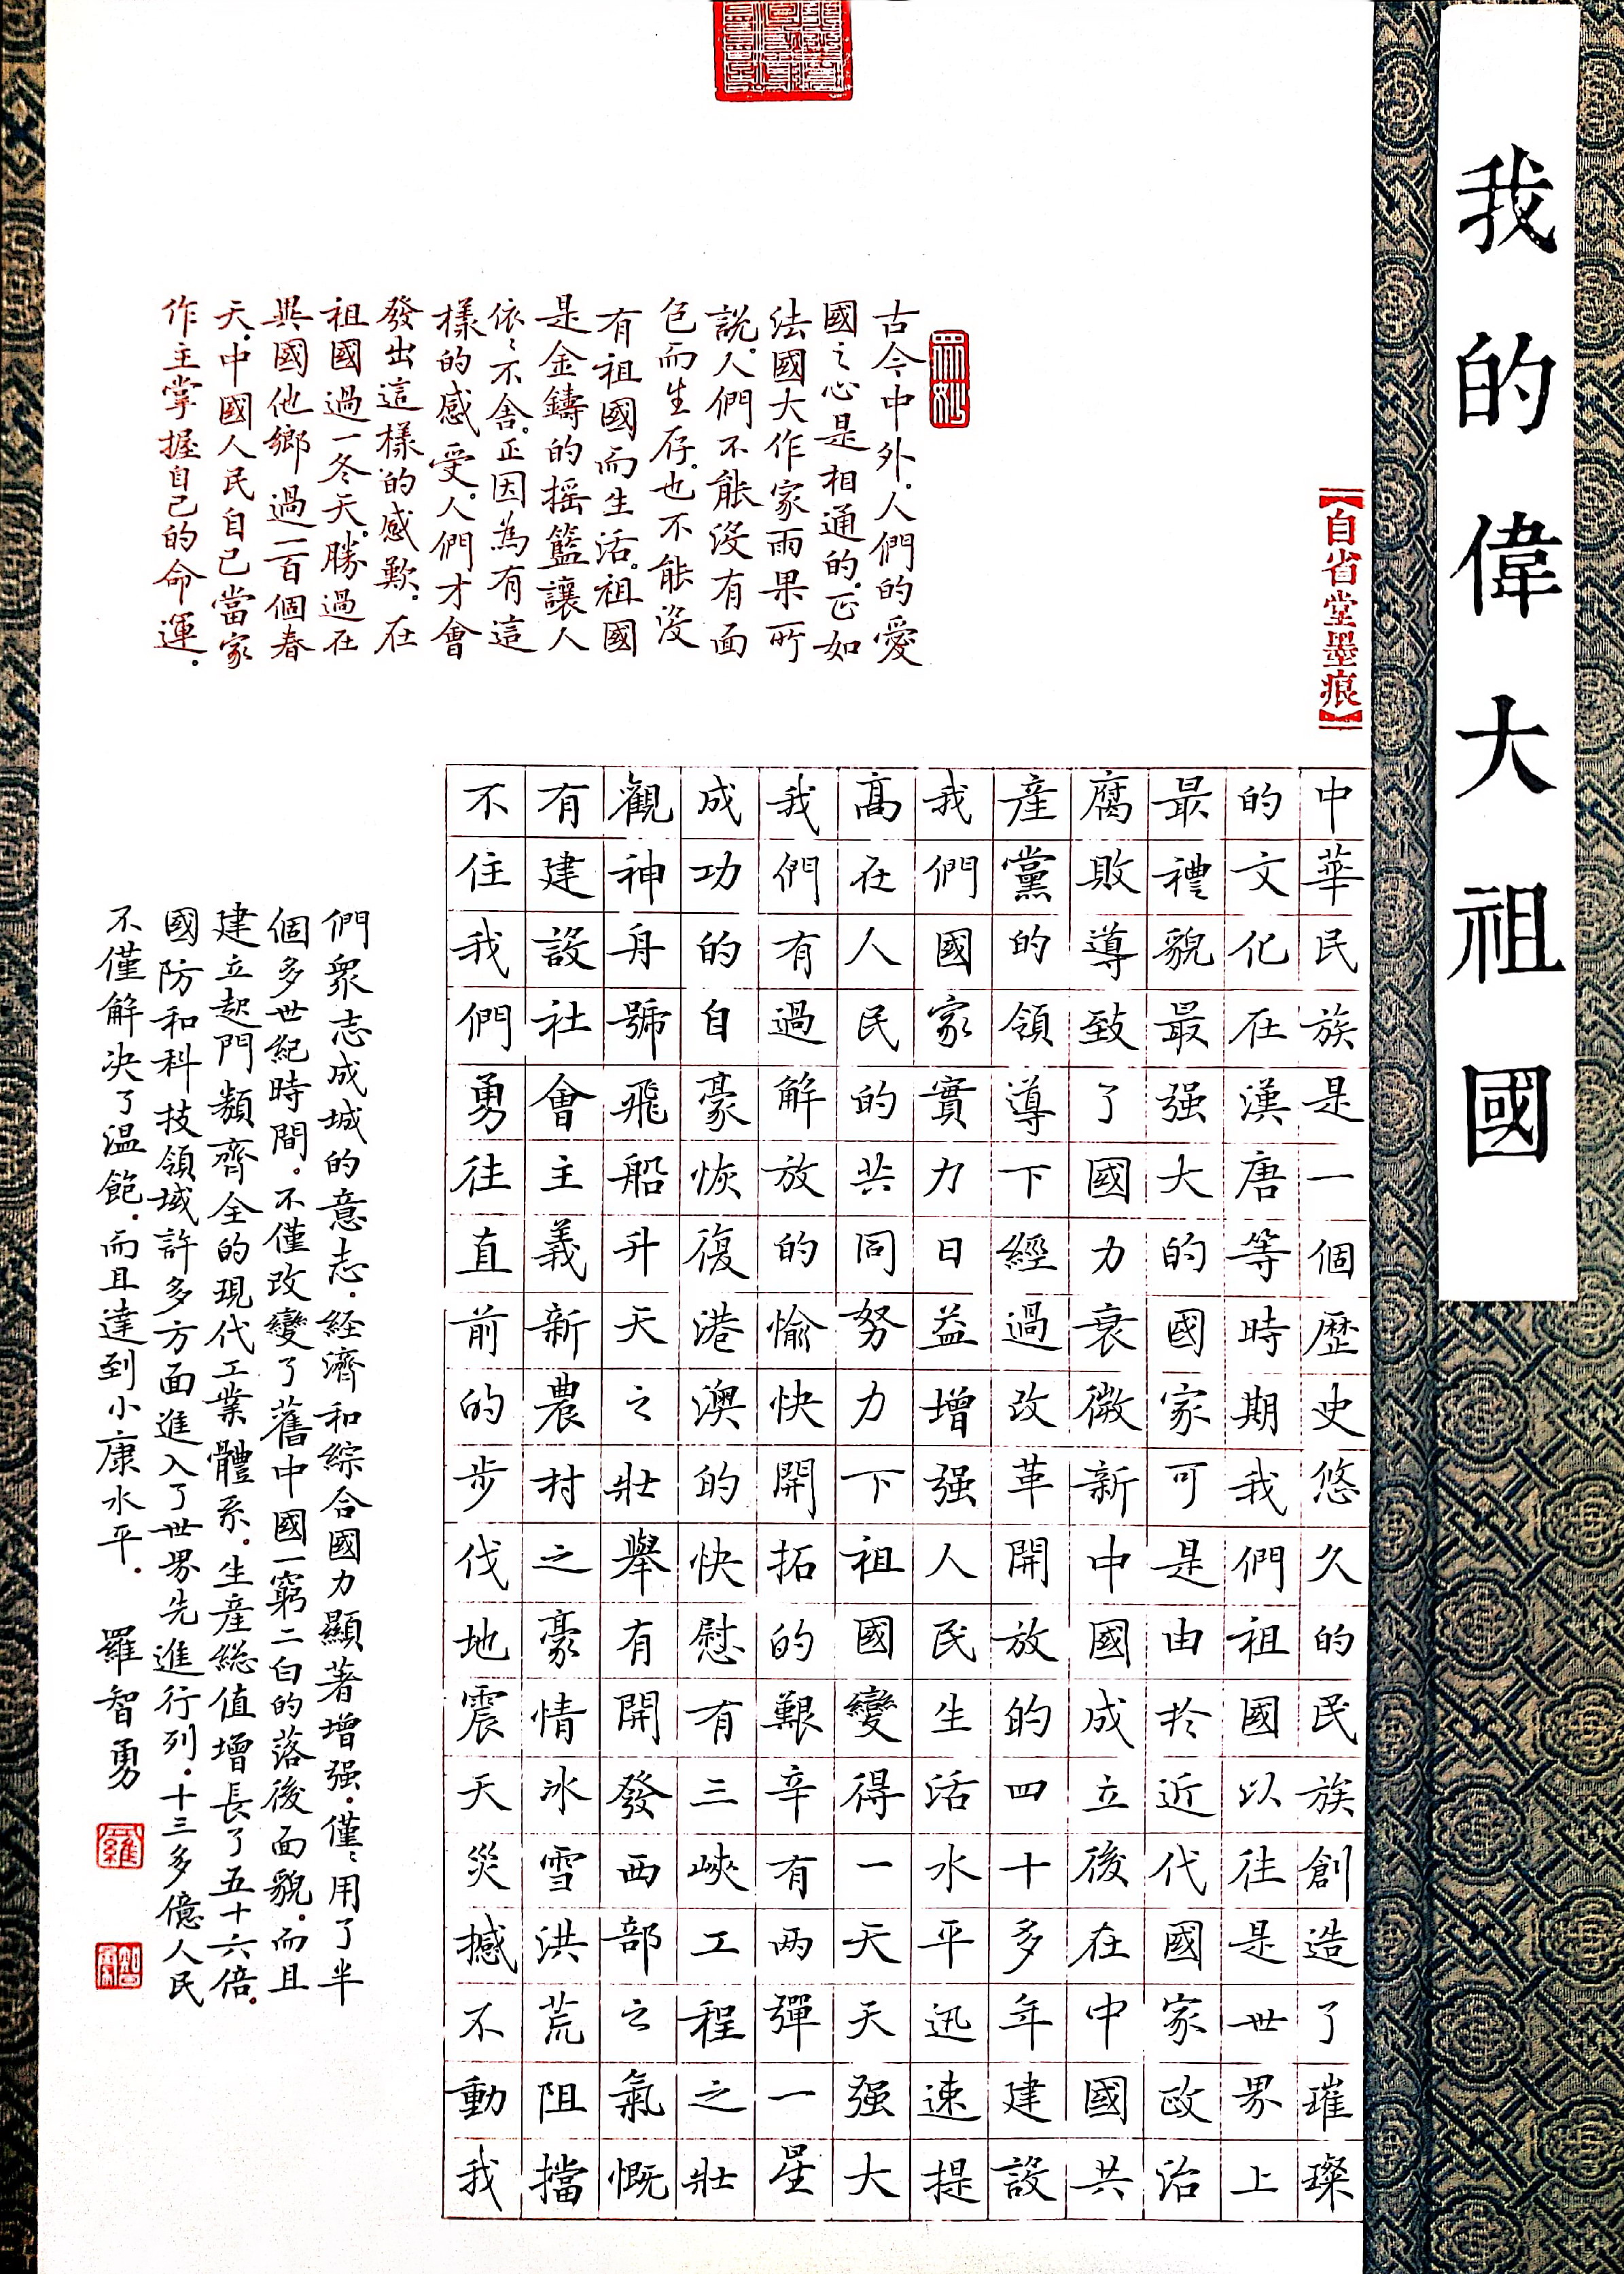 我的偉大祖國
【自省堂墨痕】
中華民族是一個歷史悠久的民族創造了璀璨
的文化在漢唐等時期我們祖國以往是世界上
最禮貌最强大的國家可是由於近代國家政治
腐敗導致了國力衰微新中國成立後在中國共
產黨的領導下經過改革開放的四十多年建設
我們國家實力日益增强人民生活水平迅速提
高在人民的共同努力下祖國變得一天天强大
我們有過解放的愉快開拓的艱辛有两彈一星
成功的自豪恢復港澳的快慰有三峽工程之壯
觀神舟號飛船升天之壯舉有開發西部之氣慨
有建設社會主義新農村之豪情冰雪洪荒阻擋
不住我們勇往直前的步伐地震天災撼不動我
們衆志成城的意志.経濟和綜合國力顯著增强.僅〻用了半
個多世紀時間.不僅改變了舊中國一窮二白的落後面貌.而且
建立起門類齊全的現代工業體系.生産総值增長了五十六倍.
國防和科技領域許多方面進入了世界先進行列.十三多億人民
不僅解决了温飽.而且達到小康水平. 羅智勇
古今中外.人們的愛
國之心是相通的.正如
法國大作家雨果所
說.人們不能没有面
包而生存.也不能没
有祖國而生活.祖國
是金鑄的摇籃讓人
依〻不舍.正因為有這
樣的感受.人們才會
發出這樣的感歎.在
祖國過一冬天.勝過在
異國他鄉過一百個春
天.中國人民自己當家
作主掌握自己的命運.